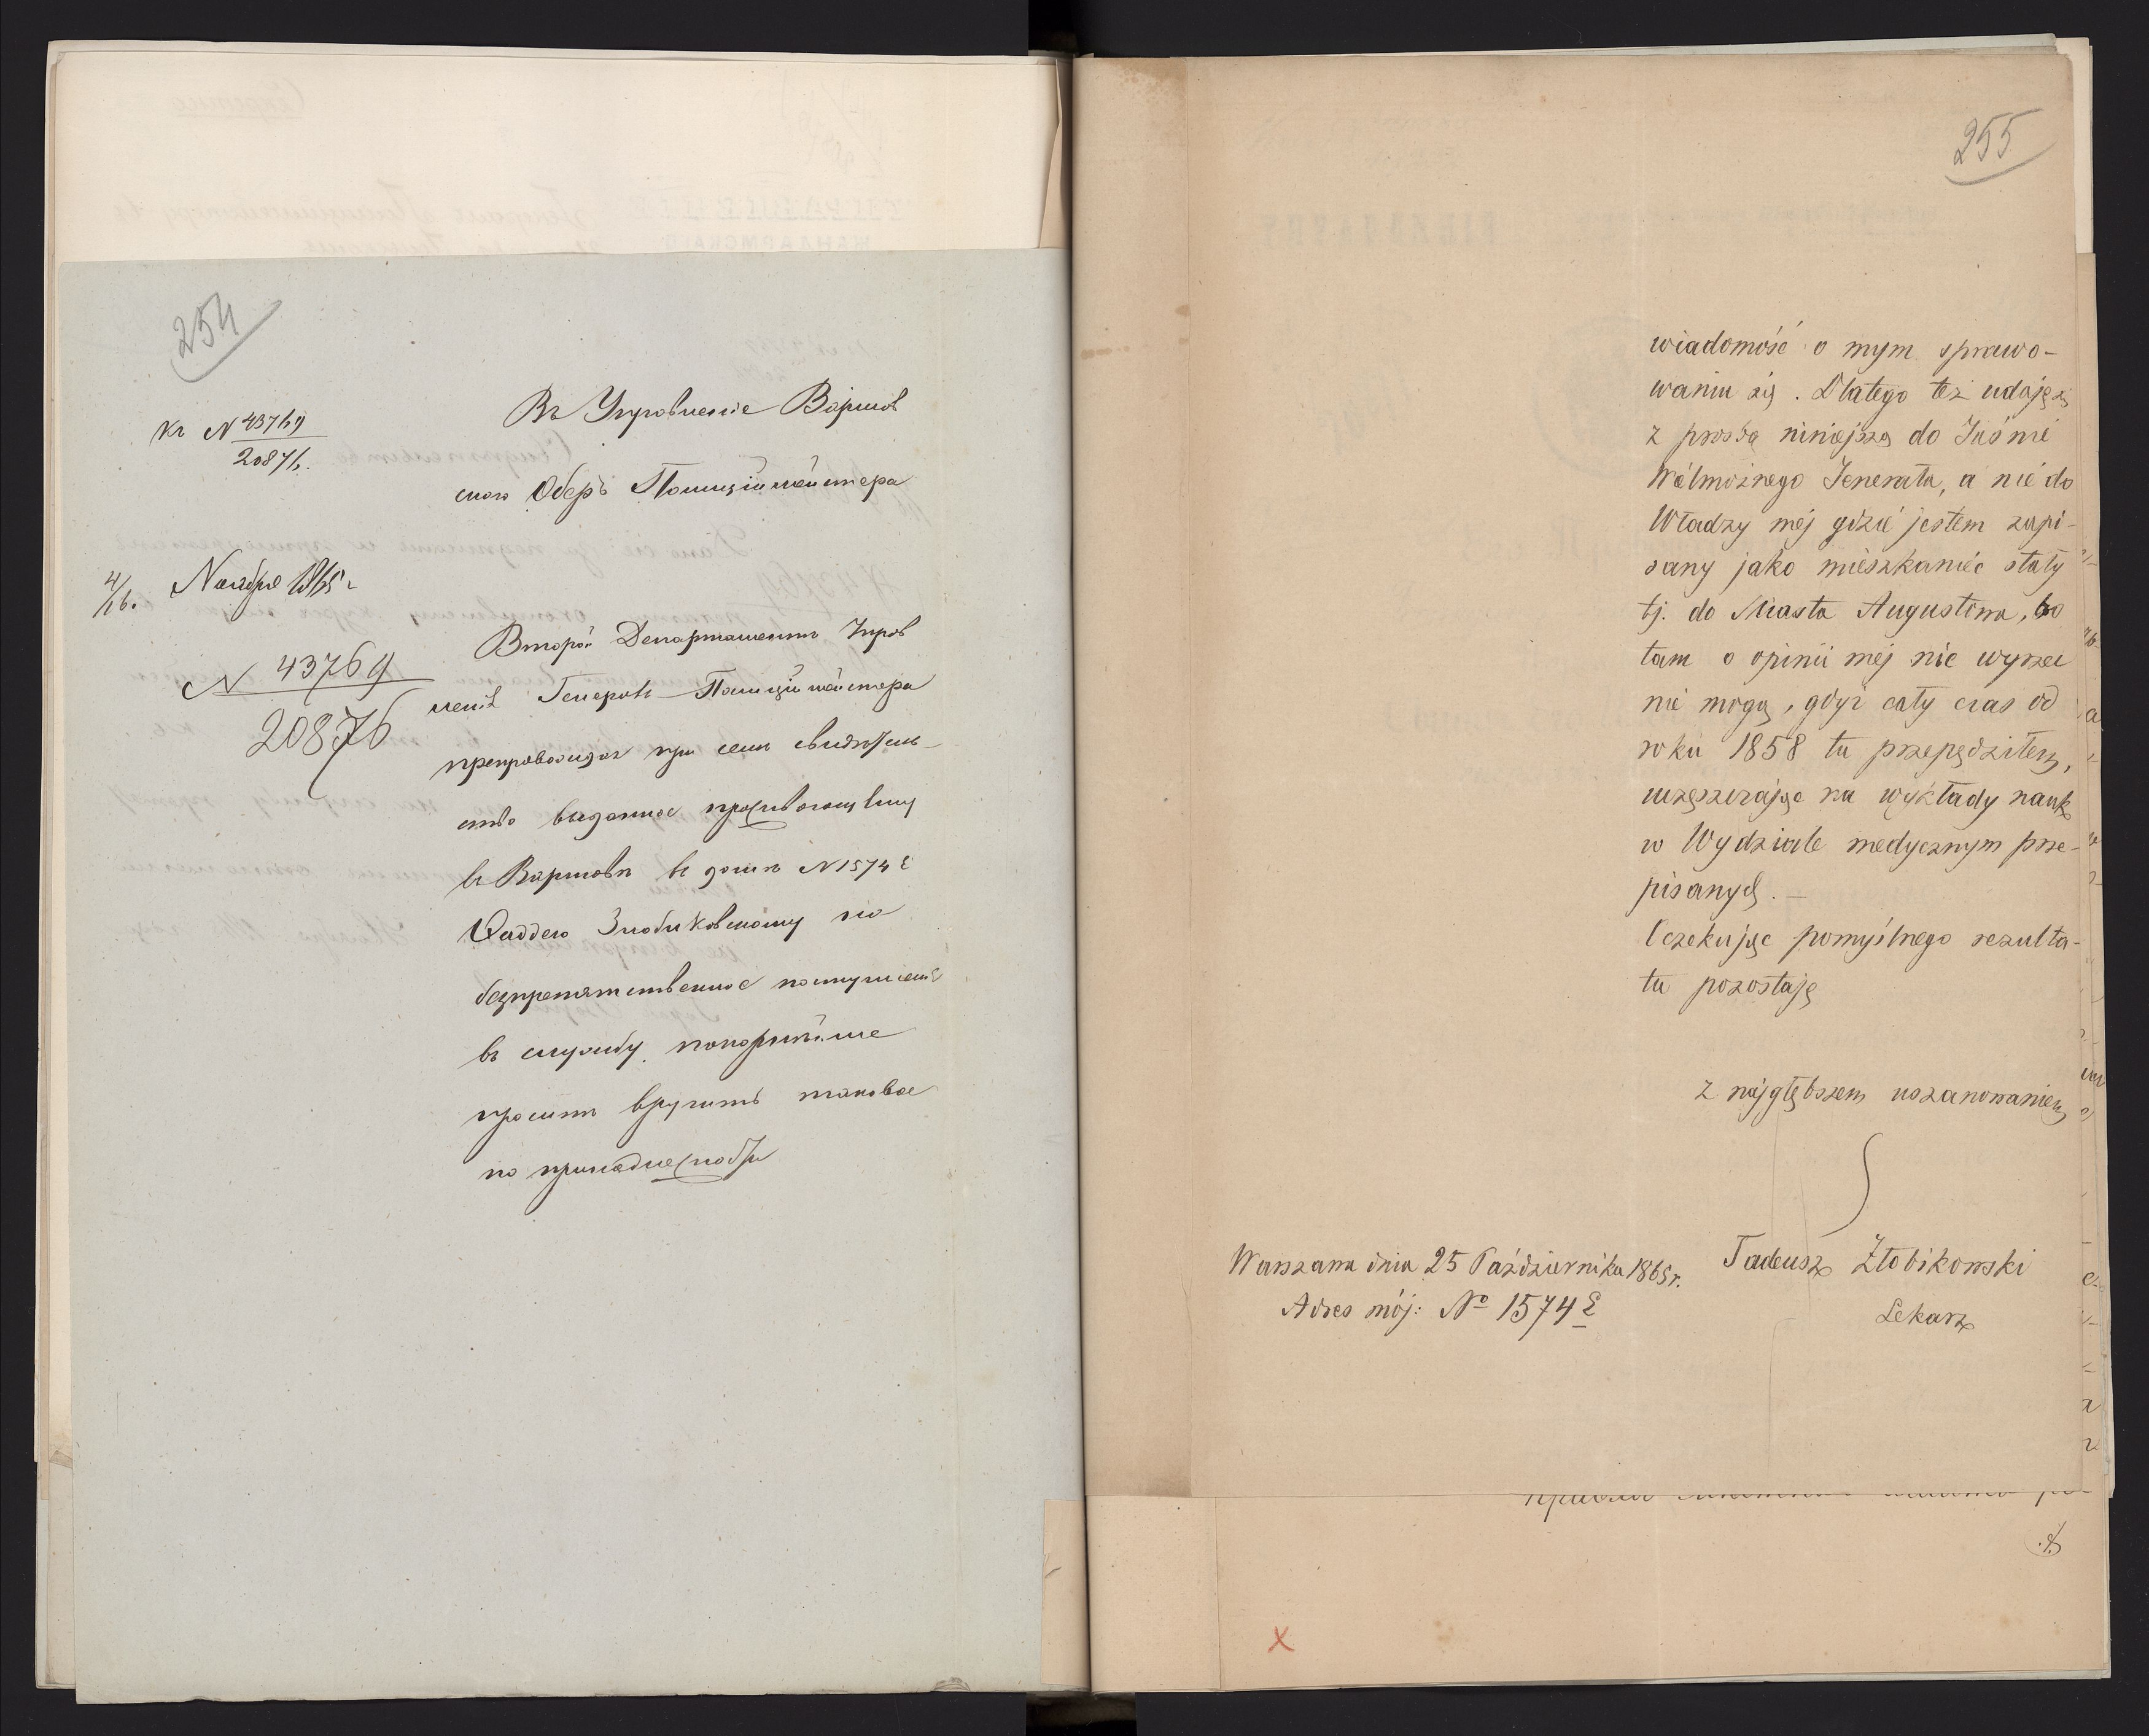 254
Къ N 43769
20876.
Въ Управленіе Варшав
скаго Оберъ Полиціймейстера
4/16. Ноября 1865 г
N 43769
20876
Второй Департаментъ Управ
ленія Генералъ-Полиціймейстера
препровождая при семъ свидѣтель-
ство выданное проживающему
въ Варшавѣ въ домѣ N 1574 E
Фаддею Злобиковскому на
безпрепятственное поступленіе
въ службу, покорнѣйше
проситъ вручить таковое
по принадлежности
255
wiadomość o mym sprawo-
waniu się. Dlatego też udaję się
z prośbą niniejszą do Jaśnie
Wielmożnego Jenerała, a nie do
Władzy mej gdzie jestem zapi-
sany jako mieszkaniec stały
tj. do Miasta Augustowa, bo
tam o opinii mej nic wyrzec
nie mogą, gdyż cały czas od
roku 1858 tu przepędziłem,
uczęszczając na wykłady nauk
w Wydziale medycznym prze-
pisanych. —
Oczekując pomyślnego rezulta-
tu pozostaję
z najgłębszem uszanowaniem
Tadeusz Złobikowski
Lekarz
Warszawa dnia 25 Października 1865 r.
Adres mój: No 1574 E
x